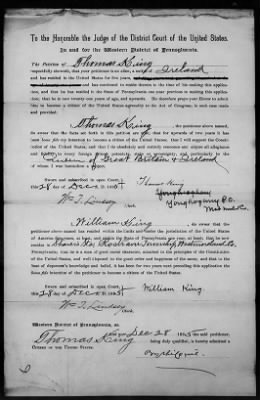 To the Honorable the Judge of the District Court of the United States.
In and for the Western District of Pennsylvania.
The Petition of Thomas King
respectfully sheweth, that your petitioner is an alien, a native of Ireland
and has resided in the United States for five years,
and has continued to reside therein to the time of his making this application,
and that he has resided in the State of Pennsylvania one year previous to making this application,
that he is now twenty-one years of age, and upwards. He therefore prays your Honor to allow
him to become a citizen of the United States agreeably to the Act of Congress, in such case made
and provided.
Thomas King, the above named petitioner,
do swear that the facts set forth in this petition are true, and that upwards of two years it has
been bona fide my intention to become a citizen of the United States, that I will support the Constitution
of the United States, and that I do absolutely and entirely renounce and abjure all allegiance and
fidelity to every foreign prince, potentate, state or sovereignty, and particularly to the
Queen of Great Britain & Ireland
of whom I was heretofore a subject.
Sworn and subscribed in open Court, this
28 Dec A.D. 1885
Thomas King
Wm T. Lindsey Clerk
Youghiogheny P.O.
William King,
the above named petitioner has resided within the limits and under the jurisdiction of the United
States of America five years, at least, and within the State of Pennsylvania one year, at least, that he now
resides in
Rostraver Township Westmoreland Co.
Pennsylvania, was is a man of good moral character, attached to the principles of the Constitution
of the United States, and well disposed to the good order and happiness of the same; and that to the
best of deponent's knowledge and belief, it has been for two years next preceding this application the
bona fide intention of the petitioner to become a citizen of the United States.
Sworn and subscribed in open Court, this
28 Dec A.D. 1885
William King
Wm T. Lindsey Clerk
Western District of Pennsylvania, ss.
Dec 28 1885 the said petitioner,
Thomas King being duly qualified, is hereby admitted a
Citizen of the United States.